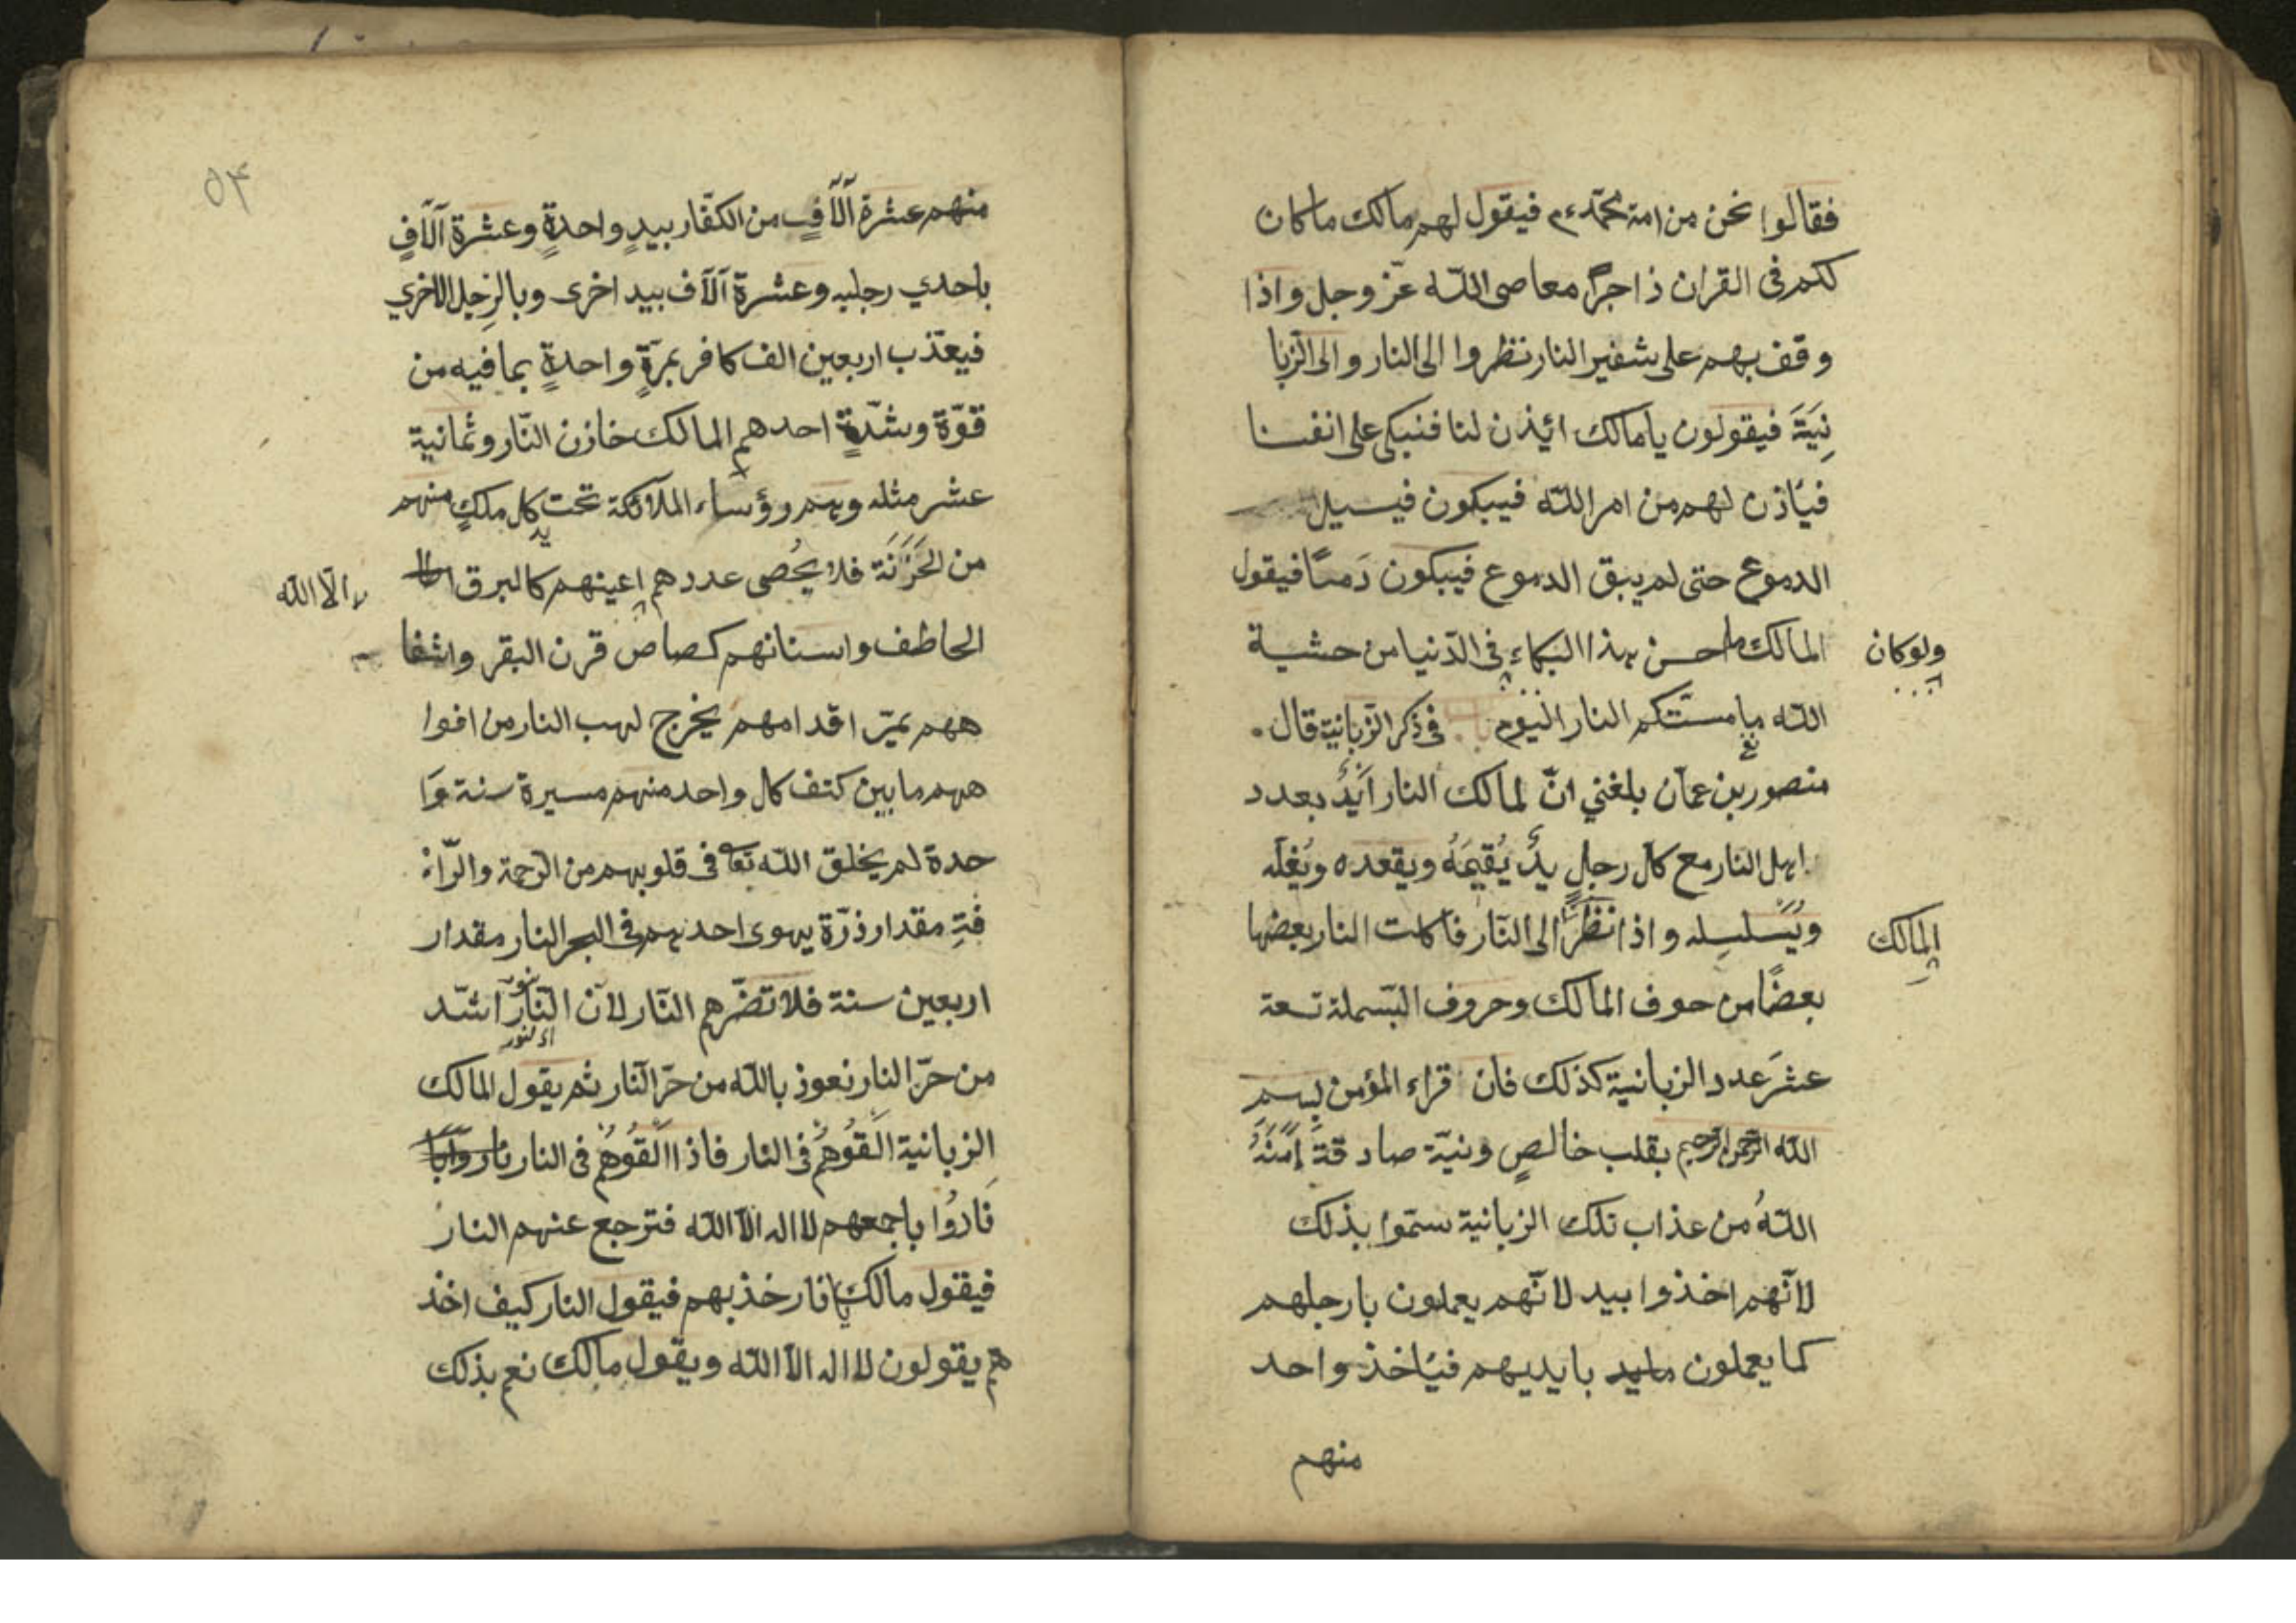 فقالوا نحن من امة محمّد ءم فيقول لهم مالك ماكان
لكم فى القران ذاجرا معاصى اللّه عزّ وجل واذا
وقف بهم على شفير النار نظروا الى النار والى الزبا
نِيَةَ فيقولون يا مالك ائيذن لنا فنبكى على انفسنا
فيأذن لهم من امر اللّه فيبكون فيسيل
الدموع حتى لم يبق الدموع فيبكون دَمًا فيقول
المالك ما احسن هذا البكاء فى الدّنيا من حشية
ولوكان
اللّه ما مسّتكم النار اليوم باب فى ذكر الزبانية قال
منصور بن عمان بلغني انّ لمالك النار اَيَدٌ بعدد
اهل النار مع كل رجلٍ يدٌ يُقيمَهُ ويقعده ويُغلّه
ويُسَلسِله واذا نظَرَ الى النّار فاكلت النار بعضها
المالك
بعضًا من حوف المالك وحروف البسملة تسعة
عشَرَ عدد الزبانية كذلك فان قراء المؤمن بِسم
اللّه الرّحمن الرّحيم بقلب خالصٍ ونيّة صادقةً اٰمَنَهُ
اللّهُ من عذاب تلك الزبانية سمّوا بذلك
لانّهم اخذوا بيد لانّهم يعملون بارجلهم
كما يعملون بايديهم فيأخذ واحد
منهم
٥٤
منهم عشرة اٰلاٰفٍ من الكفّار بيدٍ واحدةٍ وعشرة اٰلاٰفٍ
باحدي رجليه وعشرة اٰلاف بيد اخرى وبالرِجل الاخري
فيعذّب اربعين الف كافر بمرّةٍ واحدةٍ بما فيه من
قوّة وشدّةٍ احدهم المالك خازن النّار وثمانية
عشر مثله وهم رؤساء الملائكة تحت يد كل ملكٍ منهم
من الخَزَنَة فلا يُحصى عددهم اعينهم كالبرق
الّا اللّه
الحاطف واسنانهم كصاص قرن البقر واشفا
ههم يميّر اقدامهم يخرج لهب النار من افوا
ههم ما بين كتف كل واحد منهم مسيرة سنة وَا
حدة لم يخلق اللّه تعا فى قلوبهم من الرّحمة والرّاْ
فةِ مقدار ذرّة يهوى احدهم فى البحر النار مقدار
اربعين سنة فلا تضّرهم النّار لانّ النّور اشدّ
اى لنور
من حرّ النار نعوذ باللّه من حرّ النّار ثم يقول المالك
الزبانية اَلقُوهُم فى النار فاذا اَلقُوهُم فى النار
نَادوُا باجمعهم لا اله الاّ اللّه فترجع عنهم النار
فيقول مالك يا نار خذ بهم فيقول النار كيف اخذ
هم يقولون لا اله الاّ اللّه ويقول مالك نعم بذلك